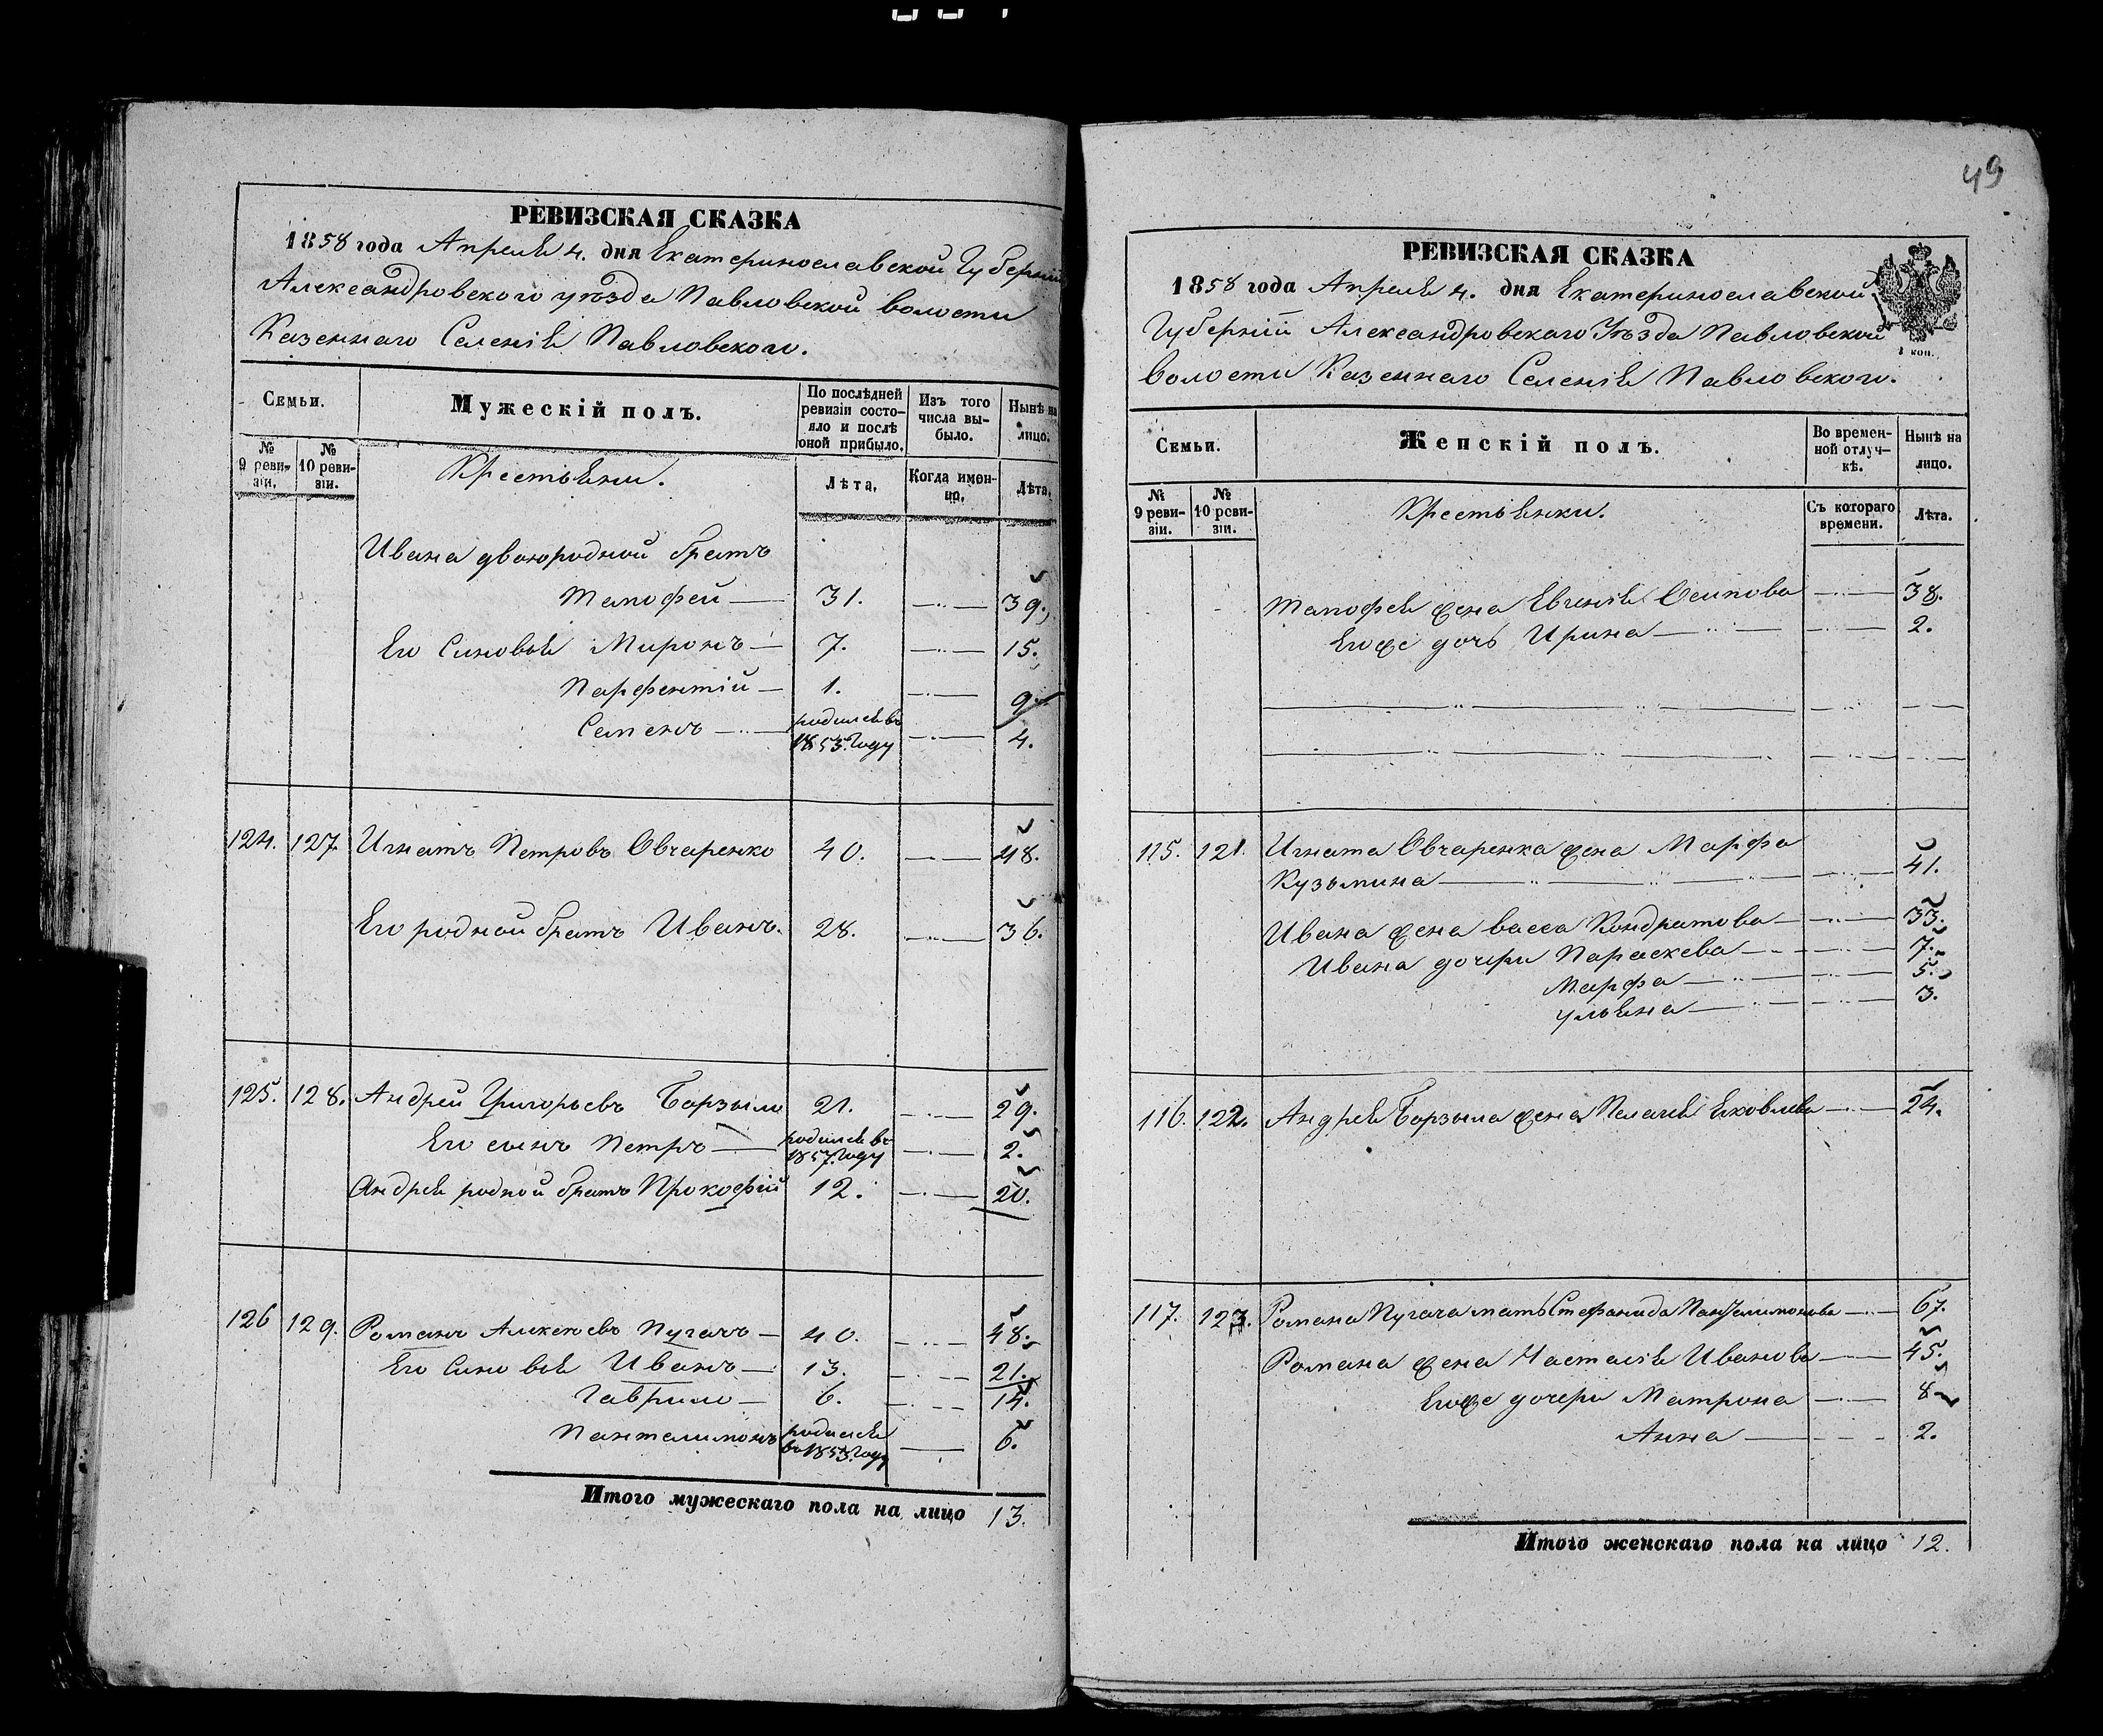 РЕВИЗСКАЯ СКАЗКА
1858 года Апреля 4. дня Екатеринославской Губерніи
Александровского уѣзда Павловской волости
Казеннаго Селенія Павловского.
Семьи.
Мужескій полъ.
По послѣдней ревизіи состояло и послѣ оной прибыло.
Изъ того числа выбыло.
Нынѣ на лицо.
№ 9 ревизіи.
№ 10 ревизіи.
Крестьяни.
Лѣта,
Когда именно,
Лѣта,
Ивана двоюродной братъ
Тимофей 31. 39.
Его Синовья Миронъ 7. 15.
Парфентій 1. 9.
Семенъ родился въ 1853. Году 4.
124. 127. Игнатъ Петровъ Овчаренко 40. 48.
Его родной братъ Иванъ. 28. 36.
125. 128. Андрей Григорьевъ Борзыло 21. 29.
Его сынъ Петръ родился въ 1857. Году 2.
Андрея родной братъ Прокофій 12. 20.
126 129. Романъ Алексеевъ Пугачъ 40. 48.
Его Синовья Иванъ 13. 21.
Гаврило 6. 14.
Пантелимонъ родился въ 1853. Году 6.
Итого мужескаго пола на лицо 13.
49
РЕВИЗСКАЯ СКАЗКА
1858 года Апреля 4. дня Екатеринославской
Губерніи Александровскаго Уѣзда Павловской
Волости Казеннаго Селенія Павловского.
Семьи.
Женскій полъ.
Во временной отлучкѣ.
Нынѣ на лицо.
№ 9 ревизіи.
№ 10 ревизіи.
Крестьянки.
Съ котораго времени.
Лѣта.
Тимофея жена Евгенія Осипова 38.
Егоже дочь Ирина 2.
115. 121. Игната Овчаренка жена Марфа
Кузьмина 41.
Ивана жена Васса Кондратова 33.
Ивана дочери Параскева 7.
Марфа 5.
Ульяна 3.
116. 122. Андрея Борзыла жена Пелагея Яковлева 24.
117. 123. Романа Пугача мать Стефанида Пантелимонова 67.
Романа жена Наталія Иванова 45.
Егоже дочери Матрона 8
Анна 2.
Итого женскаго пола на лицо 12.